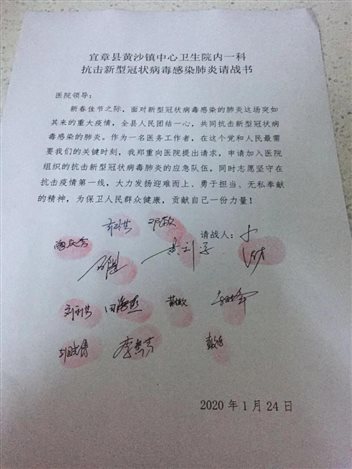 宜章县黄沙镇中心卫生院内一科
抗击新型冠状病毒感染肺炎请战书
医院领导：
新春佳节之际，面对新型冠状病毒感染的肺炎这场突如
其来的重大疫情，全县人民团结一心，共同抗击新型冠状病
毒感染的肺炎。作为一名医务工作者，在这个党和人民最需
要我们的关键时刻，我郑重向医院提出请求，申请加入医院
组织的抗击新型冠状病毒肺炎的应急队伍，同时志愿坚守在
抗击疫情第一线，大力发扬迎难而上、勇于担当、无私奉献
的精神，为保卫人民群众健康，贡献自己一份力量！
请战人：
2020 年 1 月 24 日